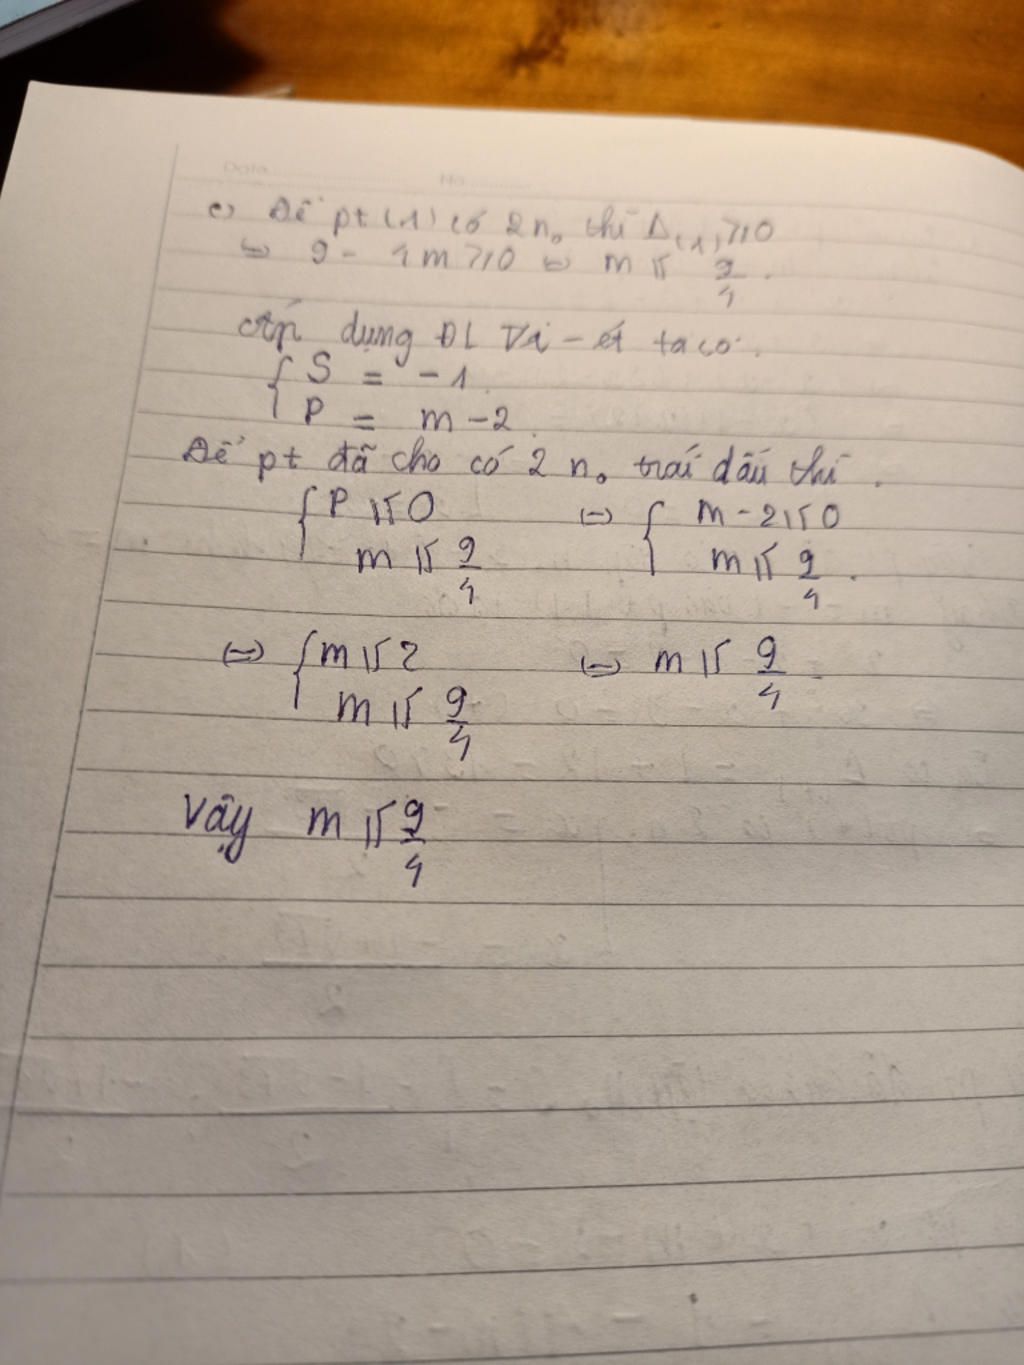 Date
No
c) Để pt (1) có 2 n₀ thì Δ₍₁₎ ⩾ 0
⇔ 9 - 4m ⩾ 0 ⇔ m ⩽ 9/4.
Áp dụng ĐL Vi-ét ta có.
{ S = -1
{ P = m - 2.
Để pt đã cho có 2 n₀ trái dấu thì.
{ P ⩽ 0 ⇔ { m - 2 ⩽ 0
{ m ⩽ 9/4 { m ⩽ 9/4.
⇔ { m ⩽ 2 ⇔ m ⩽ 9/4
{ m ⩽ 9/4
Vậy m ⩽ 9/4